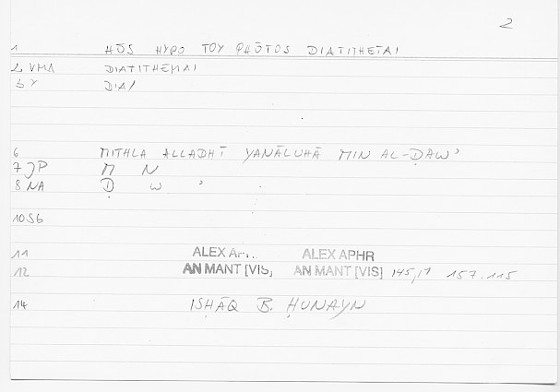 2
1 HŌS HYPO TOY PHŌTOS DIATITHETAI
2 VMA DIATITHEMAI
3 Y DIA/
6 MITHLA ALLADHĪ YANĀLUHĀ MIN AL-ḌAWʾ
7 JP M N
8 NA Ḍ W ʾ
10 SG
11 ALEX A ALEX APHR
12 AN MANT [VIS] AN MANT [VIS] 145,17 157.115
14 ISḤĀQ B. ḤUNAYN